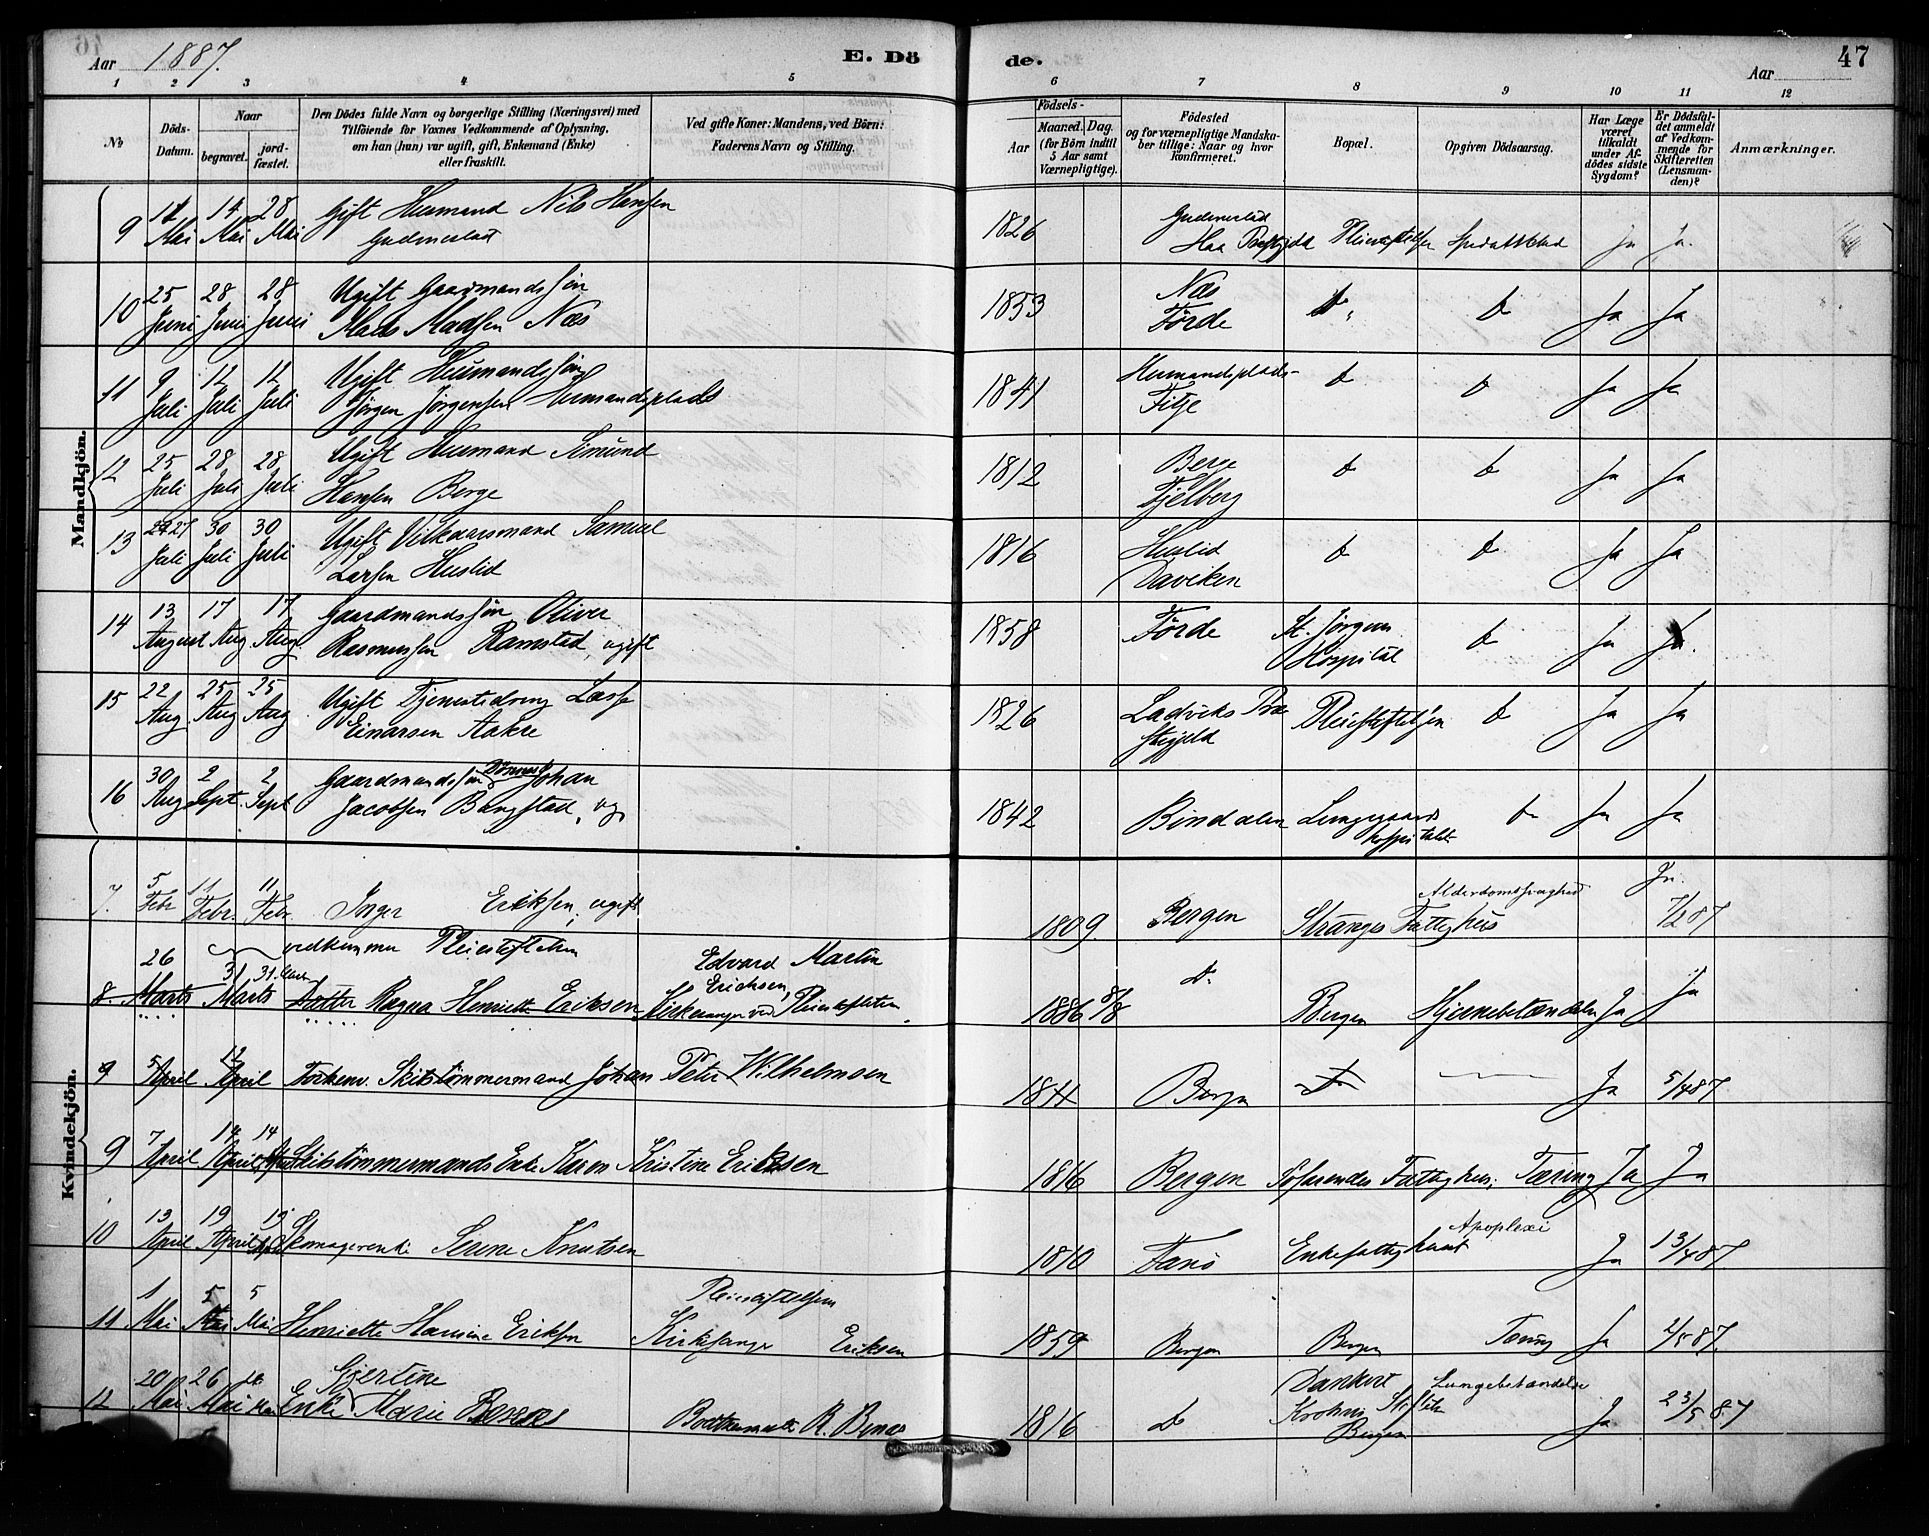 Aar 1887.
E. Dö
de.
47
Aar
1 2 3 4 5 6 7 8 9 10 11 12
No
Döds-
Datum.
Naar
begravet.
jord-
fæstet.
Den Dödes fulde Navn og borgerlige Stilling (Næringsvei) med
Tilföiende for Voxnes Vedkommende af Oplysning,
om han (hun) var ugift, gift, Enkemand (Enke)
eller fraskilt.
Ved gifte Koner: Mandens, ved Börn:
Faderens Navn og Stilling.
Födsels-
Aar
Maaned. Dag.
(for Börn indtil
5 Aar samt
Værnepligtige).
Födested
og for værnepligtige Mandska-
ber tillige: Naar og hvor
konfirmeret.
Bopæl.
Opgiven Dödsaarsag.
Har Læge
været
tilkaldt
under Af-
dödes sidste
Sygdom?
Er Dödsfal-
det anmeldt
af Vedkom-
mende for
Skifteretten
(Lensman-
den)?
Anmærkninger.
Mandkjön.
9 14 Mai 14 Mai 28 Mai Gift Husmand Nils Hansen
1826 Pleiestiftelsen Spedalskhed Ja Ja.
10 25 Juni 28 Juni 28 Juni Ugift Gaardmandssön
Mads Madsen Næs
1853 Næs
Förde do do Ja Ja
11 9 Juli 12 Juli 12 Juli Ugift Husmandssön
Jörgen Jörgensen Husmandsplads
1841 Husmandsplads-
Fitje do do Ja Ja
12 25 Juli 28 Juli 28 Juli Ugift Husmand Simund
Hansen Berge
1812 Berge
Fjelberg do do Ja Ja
13 27 Juli 30 Juli 30 Juli Ugift Vilkaarsmand Samuel
Larsen Huslid
1816 Huslid
Daviken do do Ja Ja
14 13 August 17 Aug 17 Aug. Gaardmandssön Oliver
Rasmussen Ramstad, ugift
1858 Förde St. Jörgens
Hospital do Ja Ja.
15 22 Aug 25 Aug 25 Aug Ugift Tjenestedreng Lasse
Einarsen Aakre
1826 Ladviks Præ
stegjeld Pleiestiftelsen do Ja Ja
16 30 Aug 2 Sept. 2 Sept Gaardmandssön Johan
Jacobsen Bangstad, ug.
1842 Bindalen Lungegaards
hospitalet do Ja Ja
Kvindekjön.
7. 5 Febr 11 Febr. 11 Febr. Inger Eriksen, ugift
1809. Bergen Stranges Fattighus Alderdomssvaghed Ja. 7/2 87
vedkommer Pleiestiftelsen
8. 26 Marts 31 Marts 31. Marts Datter Ragna Henriette Eriksen Edvard Martin
Erichsen,
Kirkesanger ved Pleiestiftelsen.
1886 8/8 do. Bergen Hjernebetændelse Ja Ja
9 5 April 12 April Forhenv. Skibstömmermand Johan Peter Wilhelmsen
1811 Bergen Ja 5/4 87
9 7 April 14 April 14 Skibstömmermands Enke Karen Kristine Eriksen
1816 Bergen Söfarendes Fattighus; Tæring Ja Ja
10 13 April 19 April 19 Skomagerenke Serine Knutsen
1810 Fanö Enkefattighuset Apoplexi Ja 13/4 87
11 1 Mai 5 Mai 5 Mai Henriette Hansine Eriksen Pleiestiftelsen
Kirkesanger Eriksen
1859 Bergen Bergen Tæring Ja 2/5 87.
12 20 Mai 26 Mai Enke Gjertine
Marie R. 
1816 do Dankert
Krohns Stiftelse
Bergen Lungebetændelse Ja 23/5 87